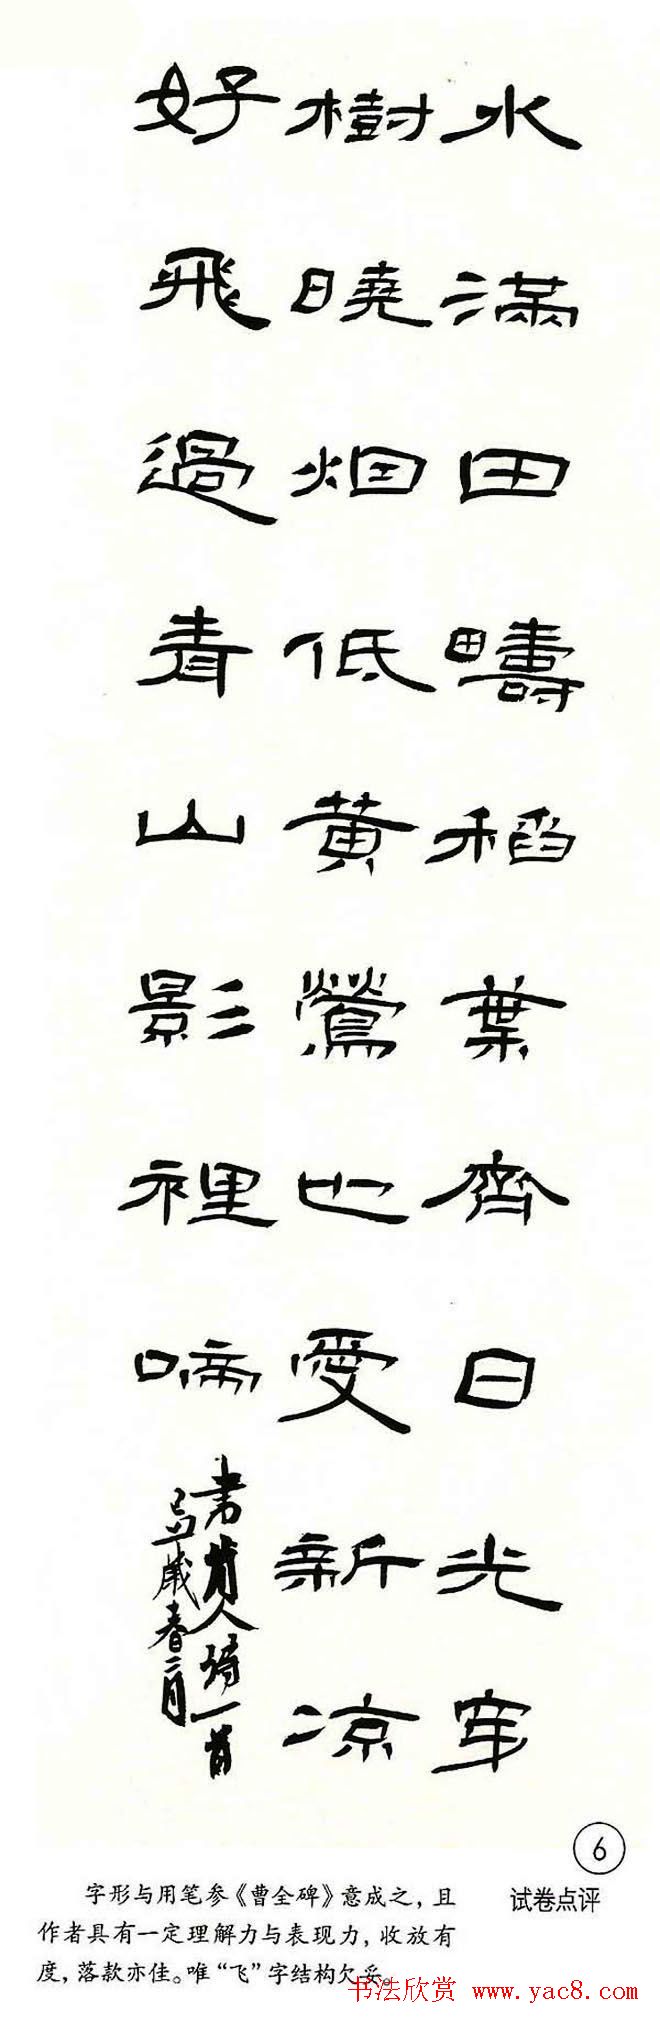 水滿田疇稻葉齊日光穿
樹曉烟低黄鶯也愛新凉
好飛過青山影裡啼
书前人诗一首
己丑歲春二月
6
试卷点评
字形与用笔参《曹全碑》意成之，且
作者具有一定理解力与表现力，收放有
度，落款亦佳。唯“飞”字结构欠妥。
书法欣赏 www.yac8.com